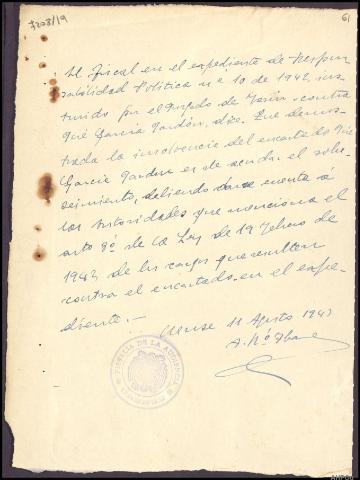 7208/19
61
El Fiscal en el expediente de Respon
sabilidad Política n.º 10 de 1942, ins
truido por el Juzgado de contra
García dice: Que demos
trada la insolvencia del encartado
García es de acordar el sobre
seimiento, debiendo darse cuenta a
las Autoridades que menciona el
artº 8º de la Ley de 19 Febrero de
1942, de los cargos que resulten
contra el encartado en el expe
diente.—
Orense 11 Agosto 1943
FISCALIA DE LA AUDIENCIA